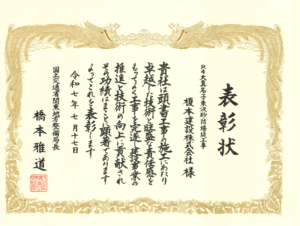 表彰状
R4大真名子東沢砂防堰堤工事
榎本建設株式会社 様
貴社は頭書工事の施工にあたり
卓越した技術と旺盛な責任感を
もってよく工事を完遂し建設事業の
推進と技術の向上に貢献され
その功績はまことに顕著であります
よってこれを表彰します
令和七年七月十七日
国土交通省関東地方整備局長
橋本雅道